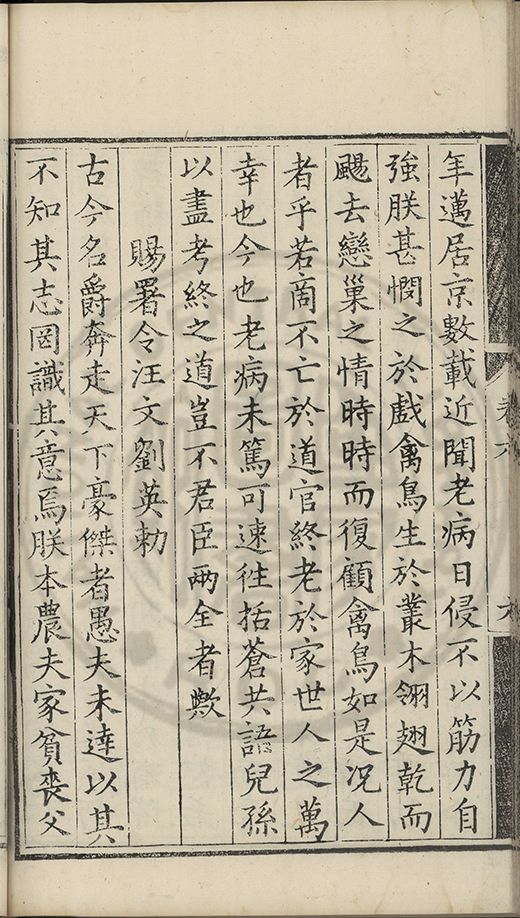 年邁居京數載近聞老病日侵不以筋力自
強朕甚憫之於戲禽鳥生於叢木翎翅乾而
颺去戀巢之情時時而復顧禽鳥如是况人
者乎若啇不亡於道官終老於家世人之萬
幸也今也老病未篤可速徃括蒼共語兒孫
以盡考終之道豈不君臣兩全者歟
賜署令汪文劉英勅
古今名爵奔走天下豪傑者愚夫未達以其
不知其志罔識其意焉朕本農夫家貧喪父
卷六
六